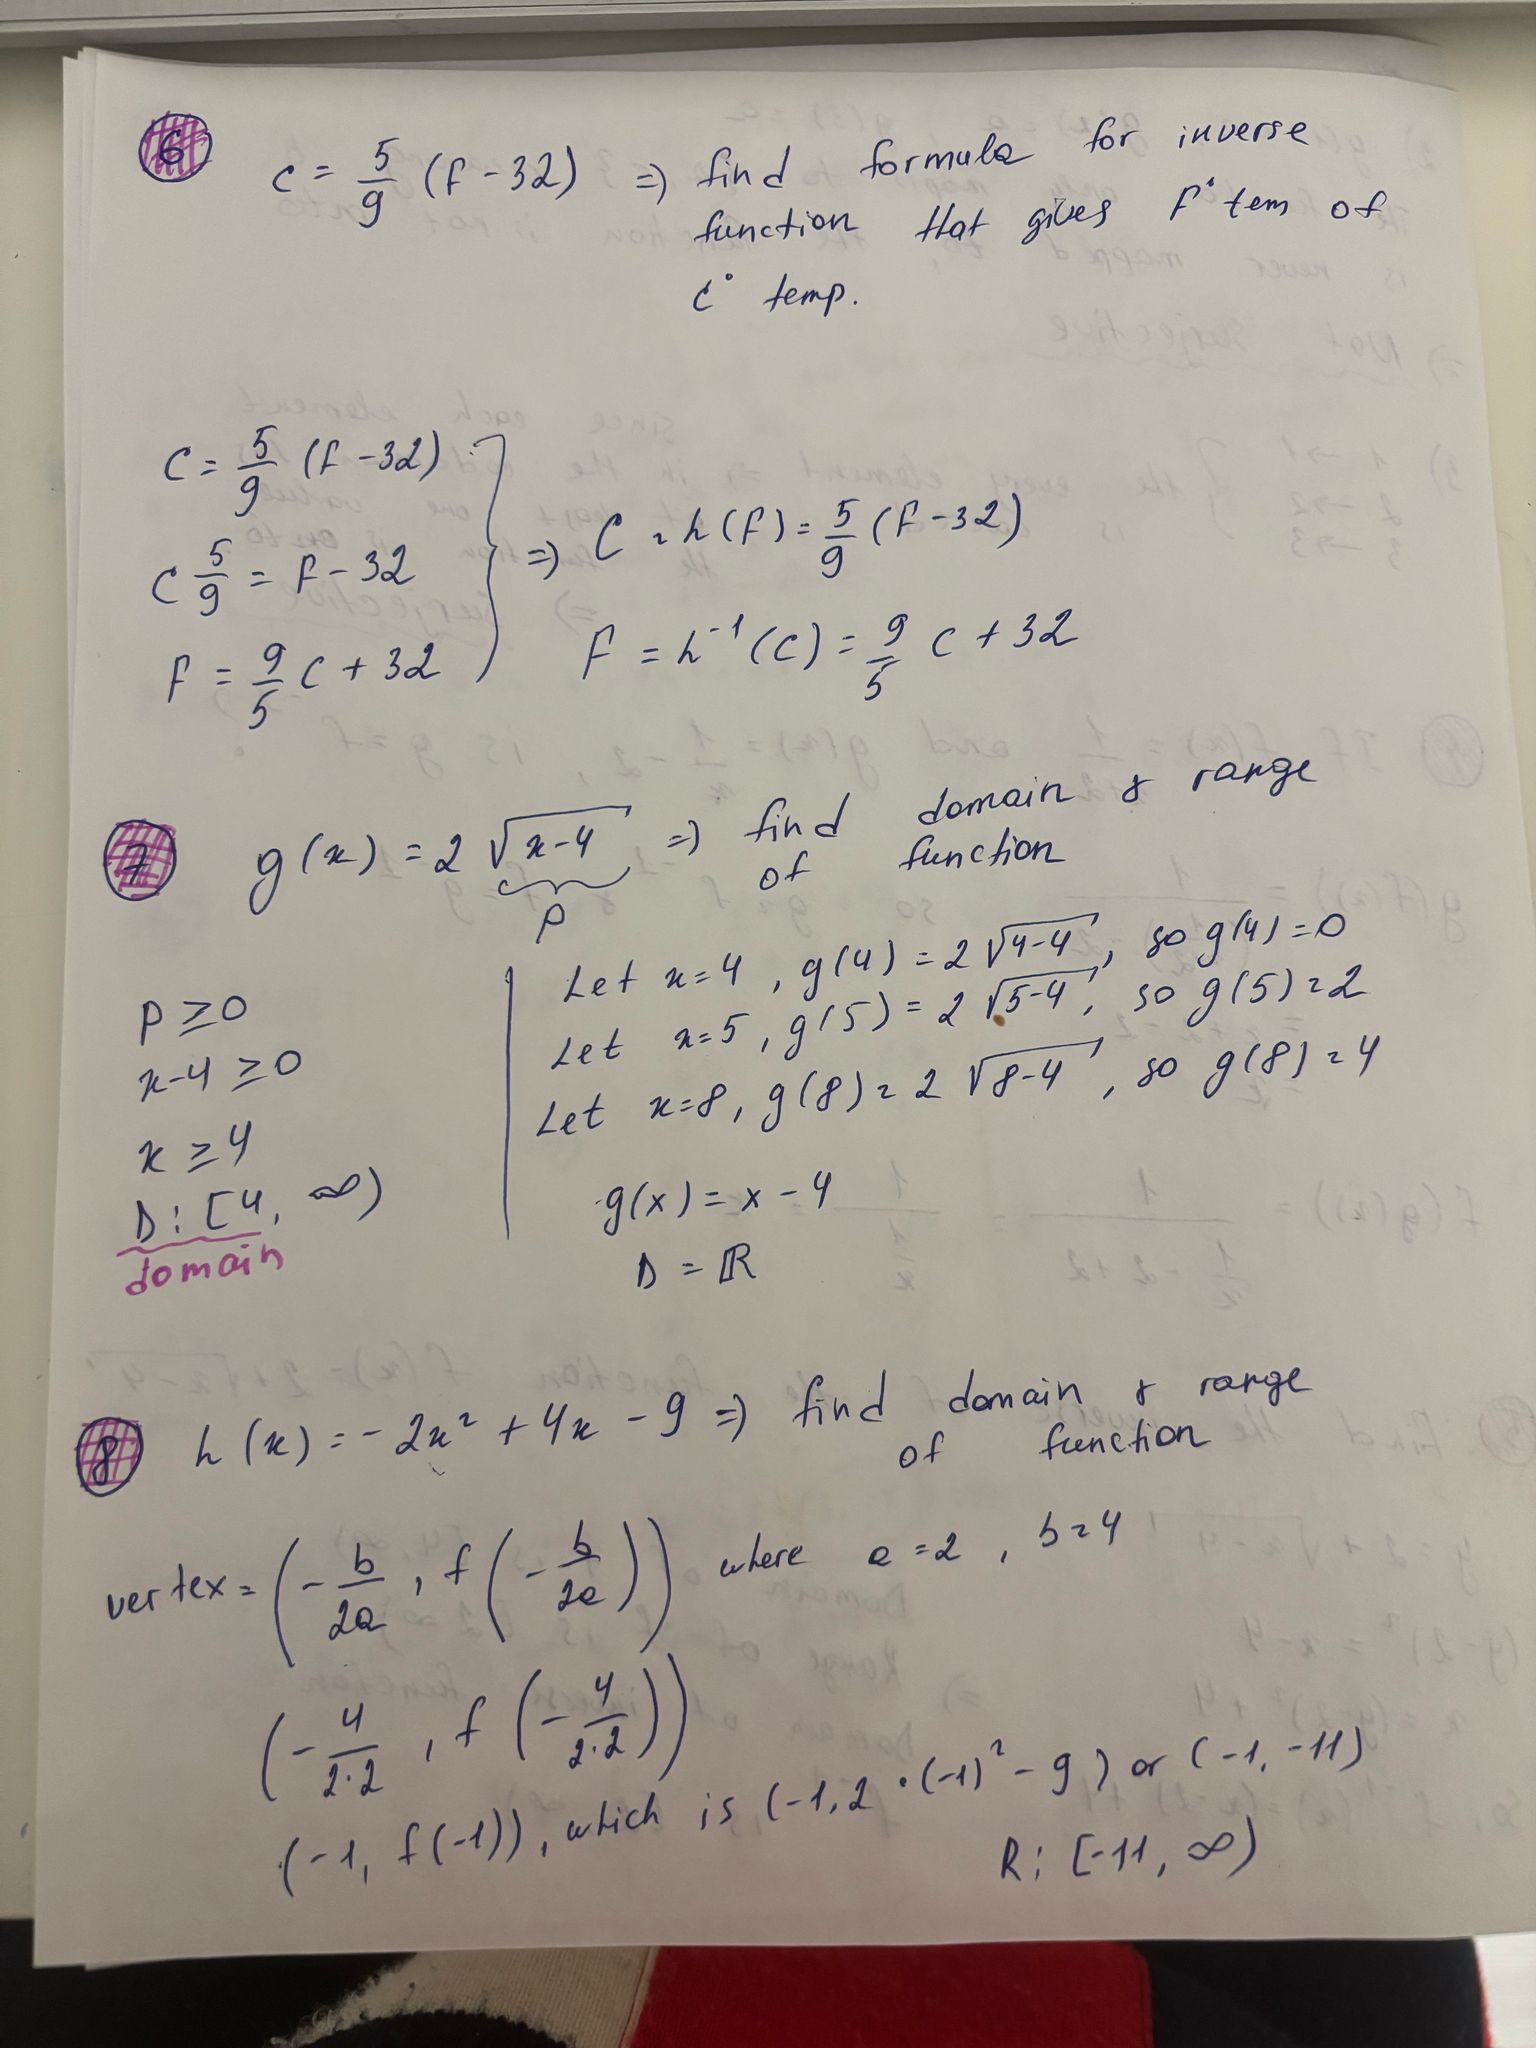 6
C = 5/9 (F - 32) ⇒ find formula for inverse
function that gives F° tem of
C° temp.
C = 5/9 (F - 32)
C 5/9 = F - 32
F = 9/5 C + 32
⇒ C = h(F) = 5/9 (F - 32)
F = h⁻¹(C) = 9/5 C + 32
7
g(x) = 2 √(x-4) ⇒ find domain & range
of function
P
P ≥ 0
x-4 ≥ 0
x ≥ 4
D: [4, ∞)
domain
Let x=4, g(4) = 2 √(4-4), so g(4) = 0
Let x=5, g(5) = 2 √(5-4), so g(5) = 2
Let x=8, g(8) = 2 √(8-4), so g(8) = 4
g(x) = x - 4
D = ℝ
8
h(x) = -2x² + 4x - 9 ⇒ find domain & range
of function
vertex = (-b/2a, f(-b/2a)) where a = 2, b = 4
(-4/2·2, f(-4/2·2))
(-1, f(-1)), which is (-1, 2·(-1)² - 9) or (-1, -11)
R: [-11, ∞)